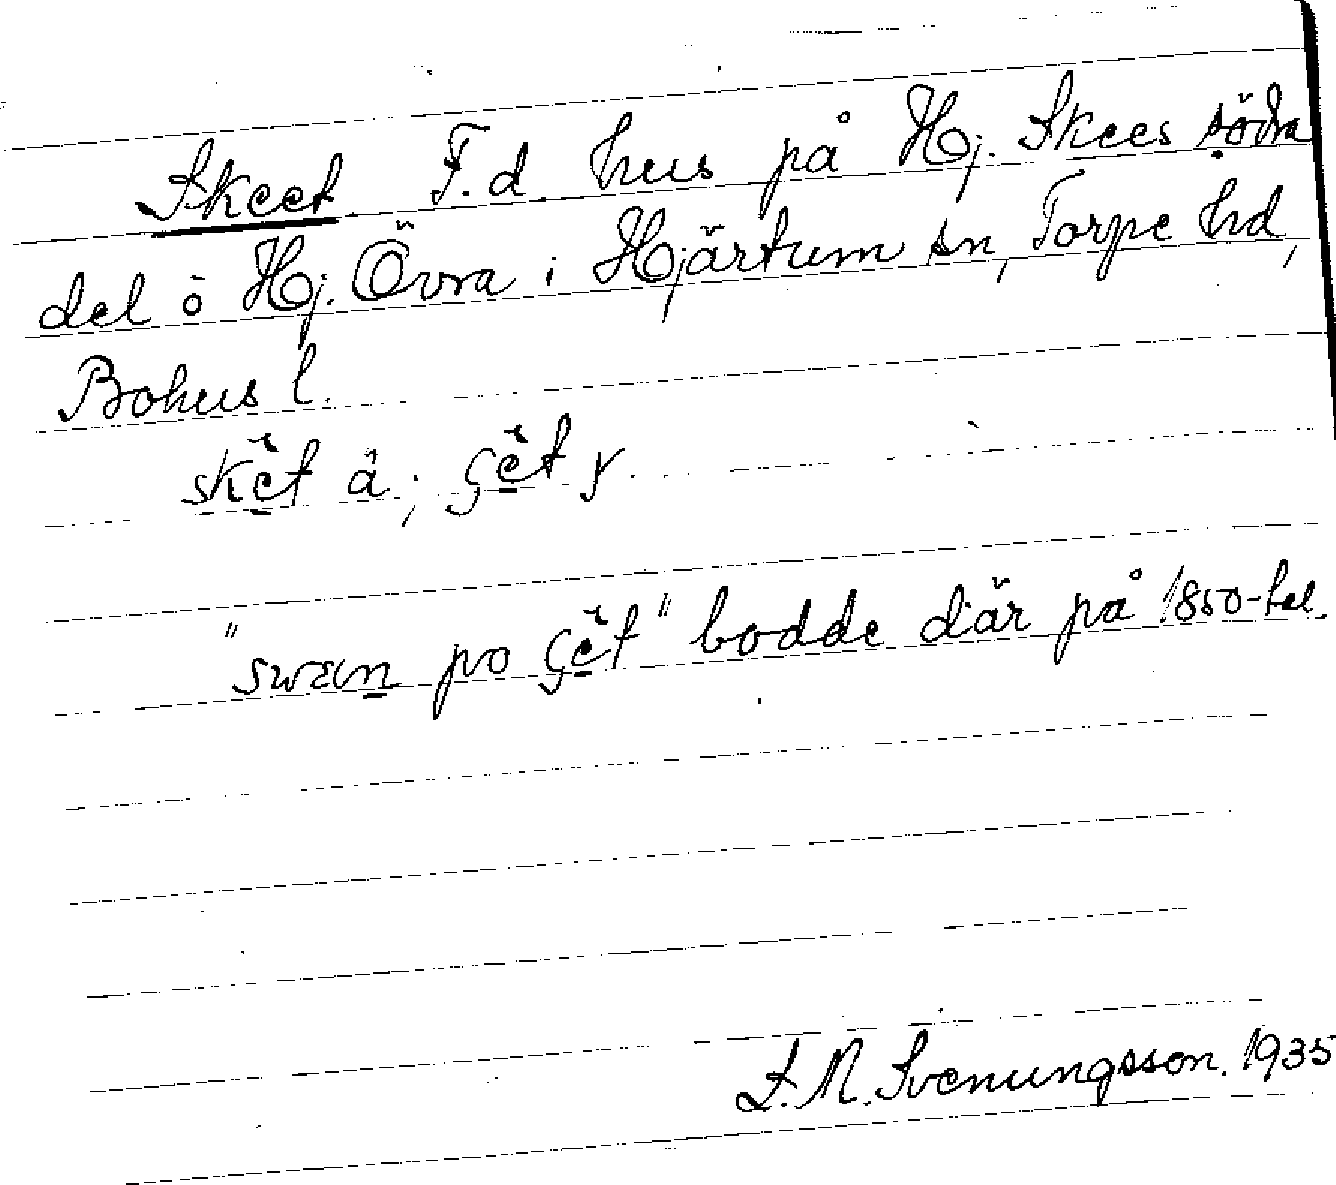 Skeet. F.d. hus på Hj. Skees södra
del ö Hj. Övra i Hjärtum sn, Torpe hd,
Bohus l.
skět â; çět y.
"swæn po çět" bodde där på 1850-tal.
L. M. Svenungsson. 1935